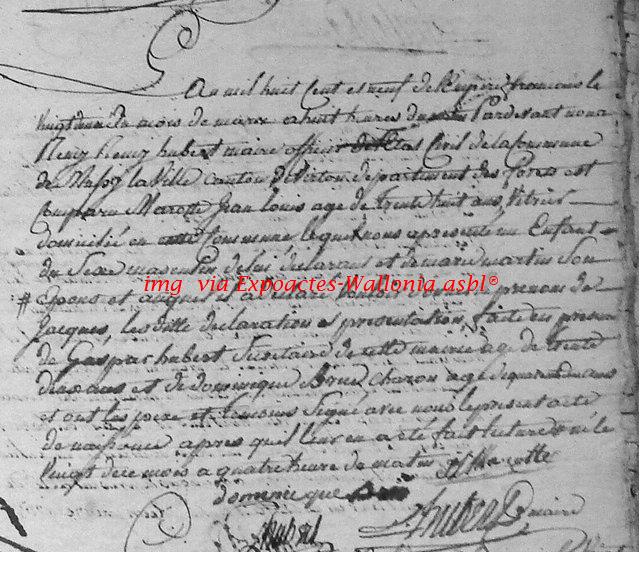 An mil huit Cent et neuf de l'Empire francais le
du mois de mars a huit heures du matin Pardevant nous
Remy hubert maire officier de l'Etat Civil de la Commune
de Musson la Ville canton de Virton departement des forets est
Comparu Marotte Jean Louis age de trente huit ans, Vitrier
domicilié en cette Commune lequel nous a presenté un Enfant
du Sexe masculin de lui declarant et de marie martin Son
# Epouse et auquel il a declaré Vouloir donner le prenom de
Jacques, les ditte declaration et presentation faite en presence
de Gaspar hubert Secretaire de cette mairie age de trente
deux ans et de dominique Brie Charon age de quarante ans
et ont les pere et temoins Signé avec nous le present acte
de naissance apres qu'il leur en a eté fait lecture # né le
Vingt de ce mois a quatre heure du matin JL Marotte
dominique Brie
hubert hubert maire
img via Expoactes-Wallonia asbl®